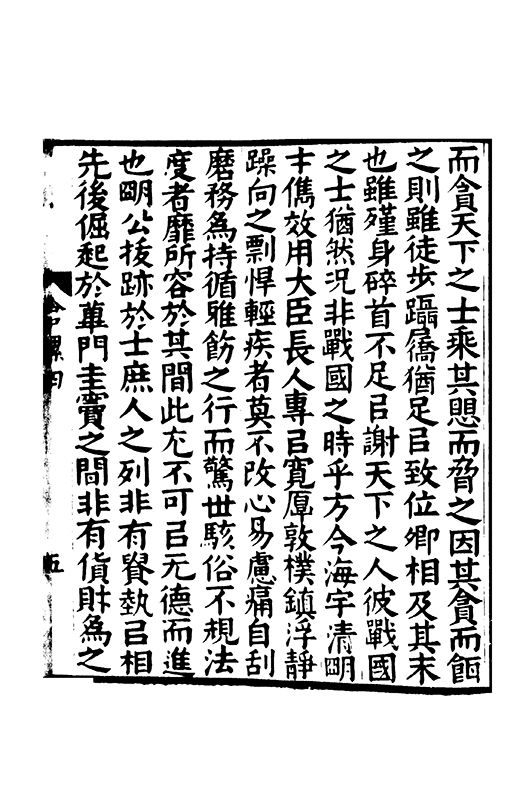 而貪天下之士乘其愳而脅之因其貪而餌
之則雖徒步躡屩猶足㠯致位卿相及其末
也雖殣身碎首不足㠯謝天下之人彼戰國
之士猶然況非戰國之時乎方今海宇清朙
士儁效用大臣長人專㠯寬厚敦樸鎮浮靜
躁向之剽悍輕疾者莫不改心易慮痛自刮
磨務爲持循雅飭之行而驚世駭俗不規法
度者靡所容於其間此尤不可㠯无德而進
也朙公拔跡於士庶人之列非有脀埶㠯相
先後倔起於蓽門圭竇之間非有貨財爲之
五